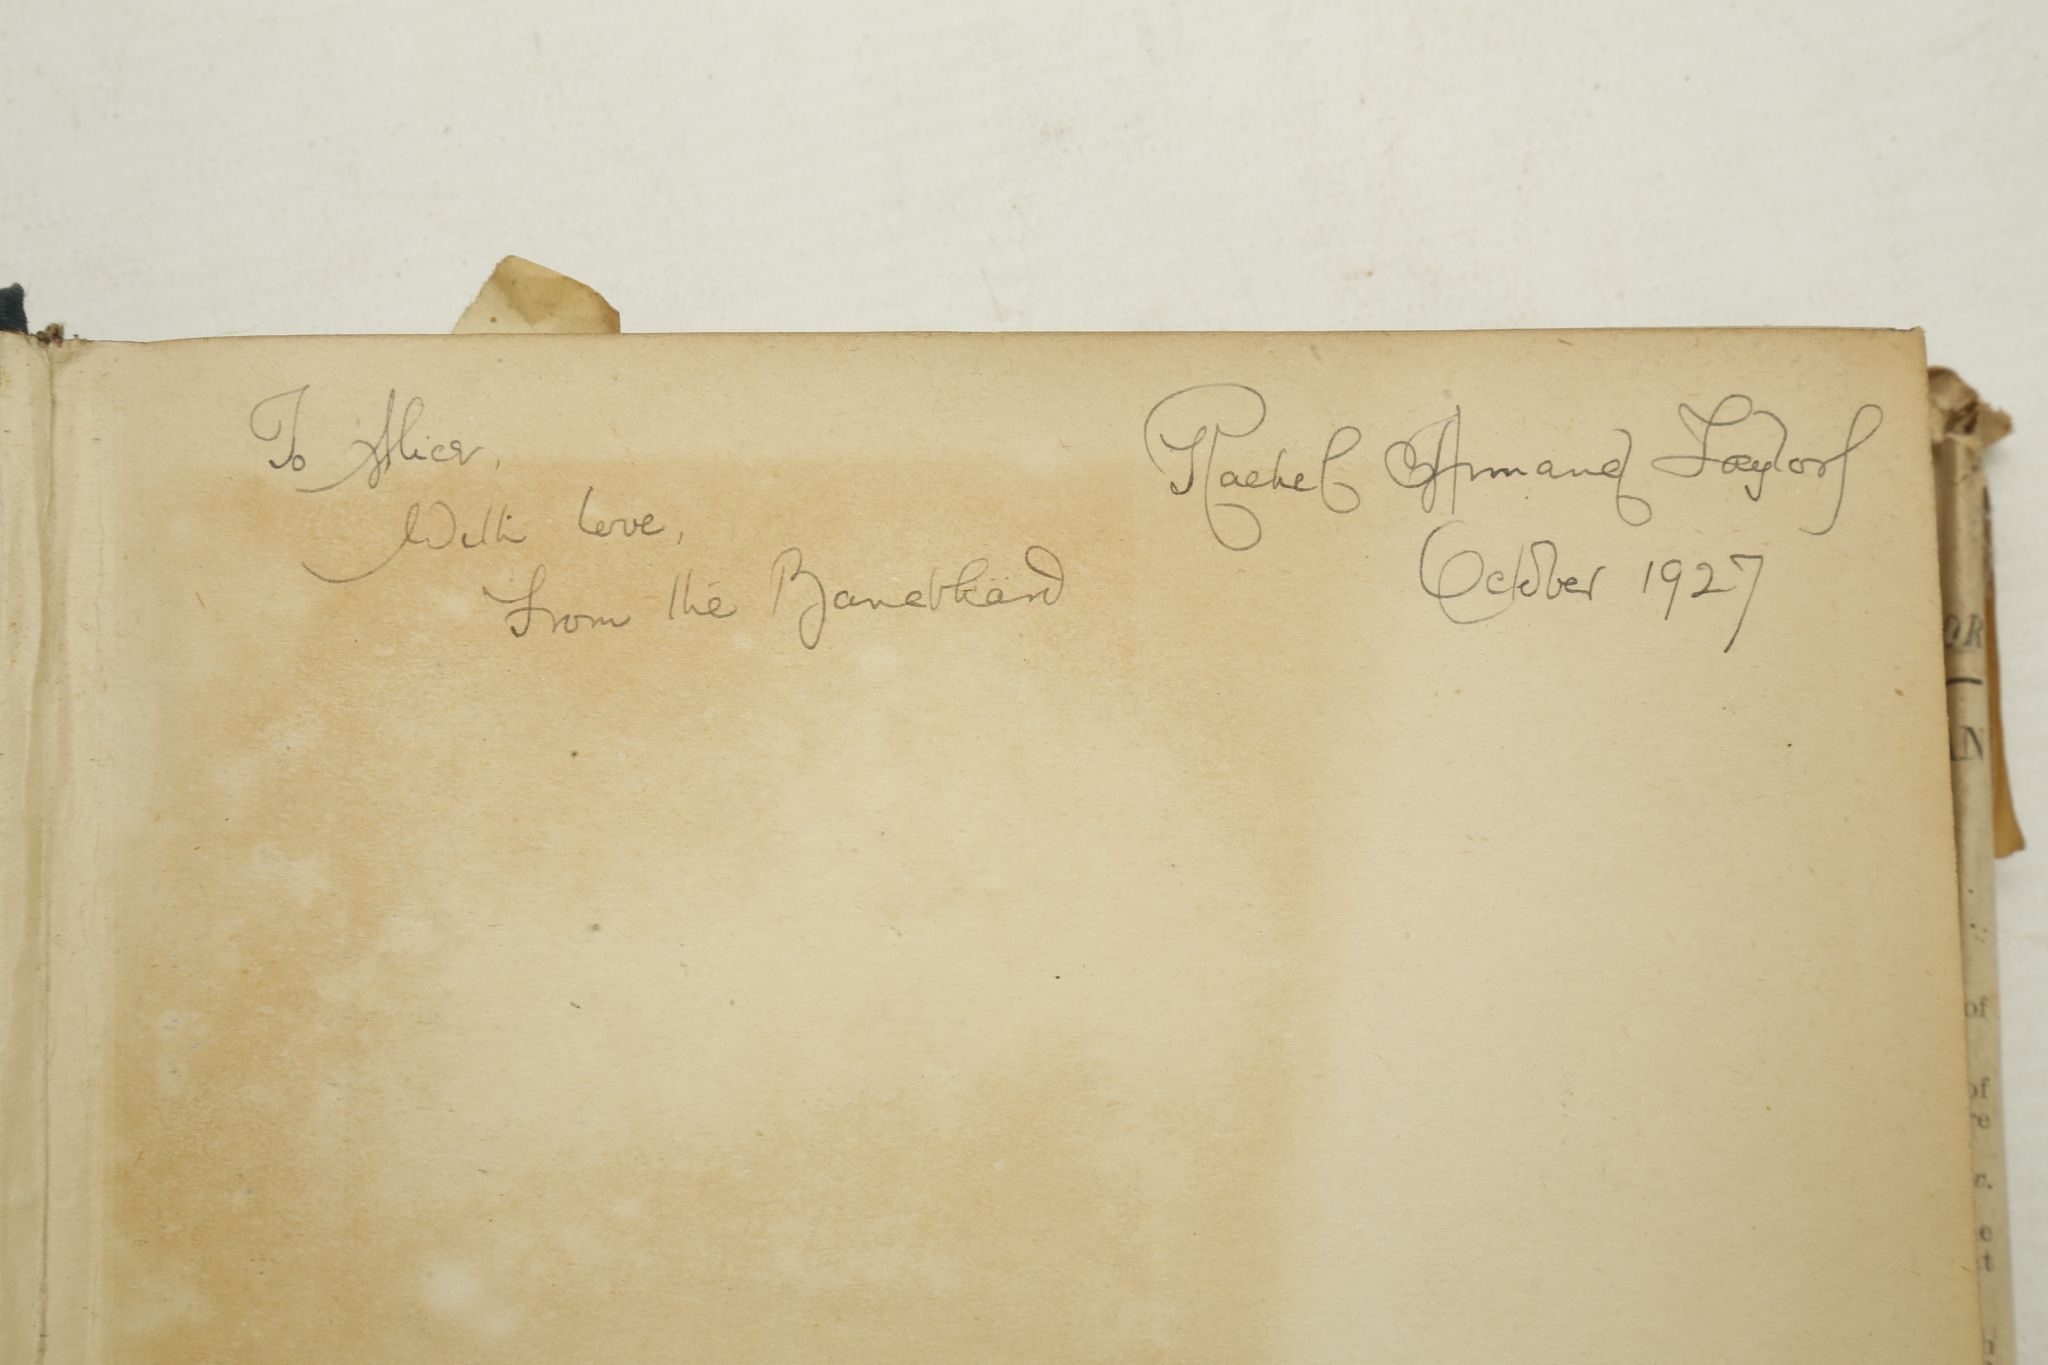 To Alice,
With love,
From the
Rachel Annand Taylor
October 1927
OR
AN
of
of
re
c.
e
t